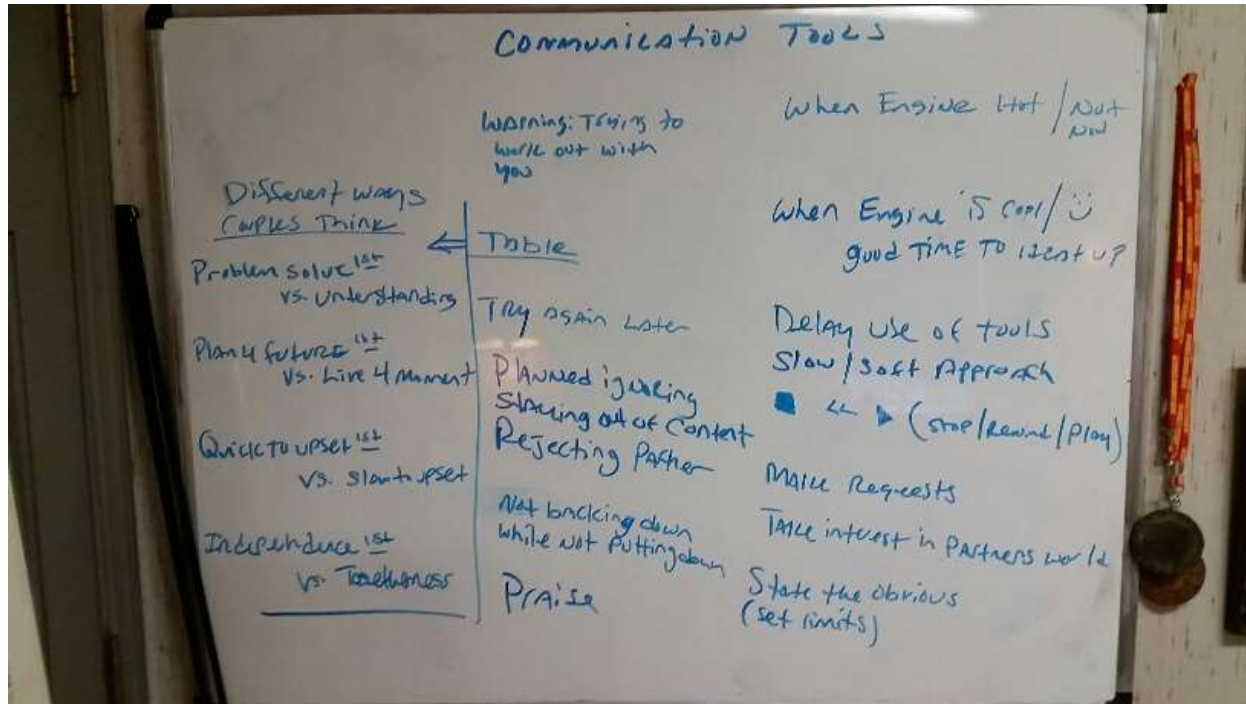 COMMUNICATION TOOLS
Different ways
Couples Think
Problem solve 1st
vs. Understanding
Plan 4 future 1st
vs. Live 4 moment
Quick to upset 1st
vs. Slow to upset
Independence 1st
vs. Togetherness
Warning: Trying to
work out with
you
Table
Try again Later
Planned ignoring
Staying out of Content
Rejecting Partner
Not backing down
while not putting down
Praise
When Engine Hot / Not
Now
When Engine is Cool /
good TIME TO Heat up
Delay use of tools
Slow / Soft Approach
(Stop / Rewind / Play)
Make Requests
Take interest in Partners world
State the obvious
(set limits)